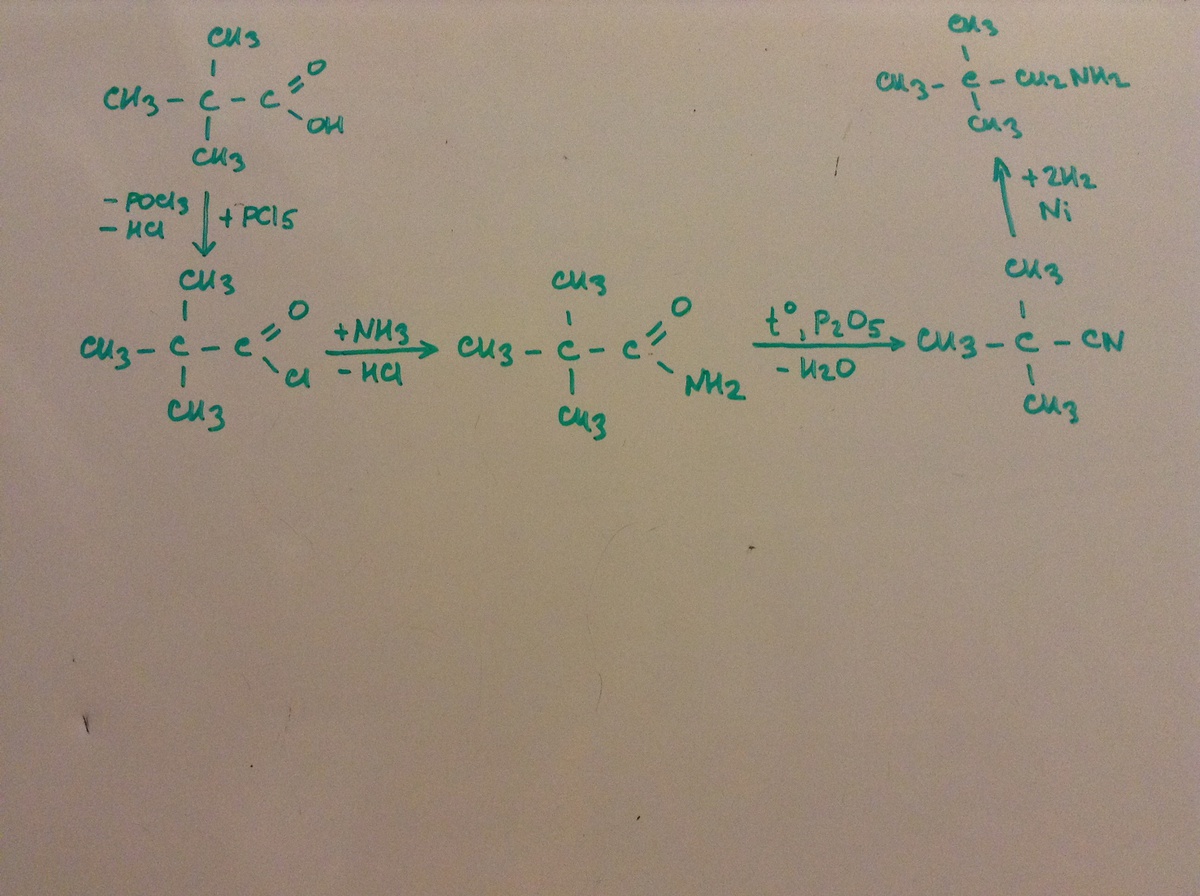 CH3
CH3 – C – C = O
\ OH
CH3
- POCl3
- HCl
+ PCl5
CH3
CH3 – C – C = O
\ Cl
CH3
+NH3
- HCl
CH3
CH3 – C – C = O
\ NH2
CH3
t°, P2O5
- H2O
CH3
CH3 – C – CN
CH3
+ 2H2
Ni
CH3
CH3 – C – CH2NH2
CH3